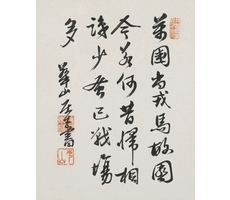 萬國尚戎馬故園
今若何昔歸相
識少蚤已戰場
多
華山
書